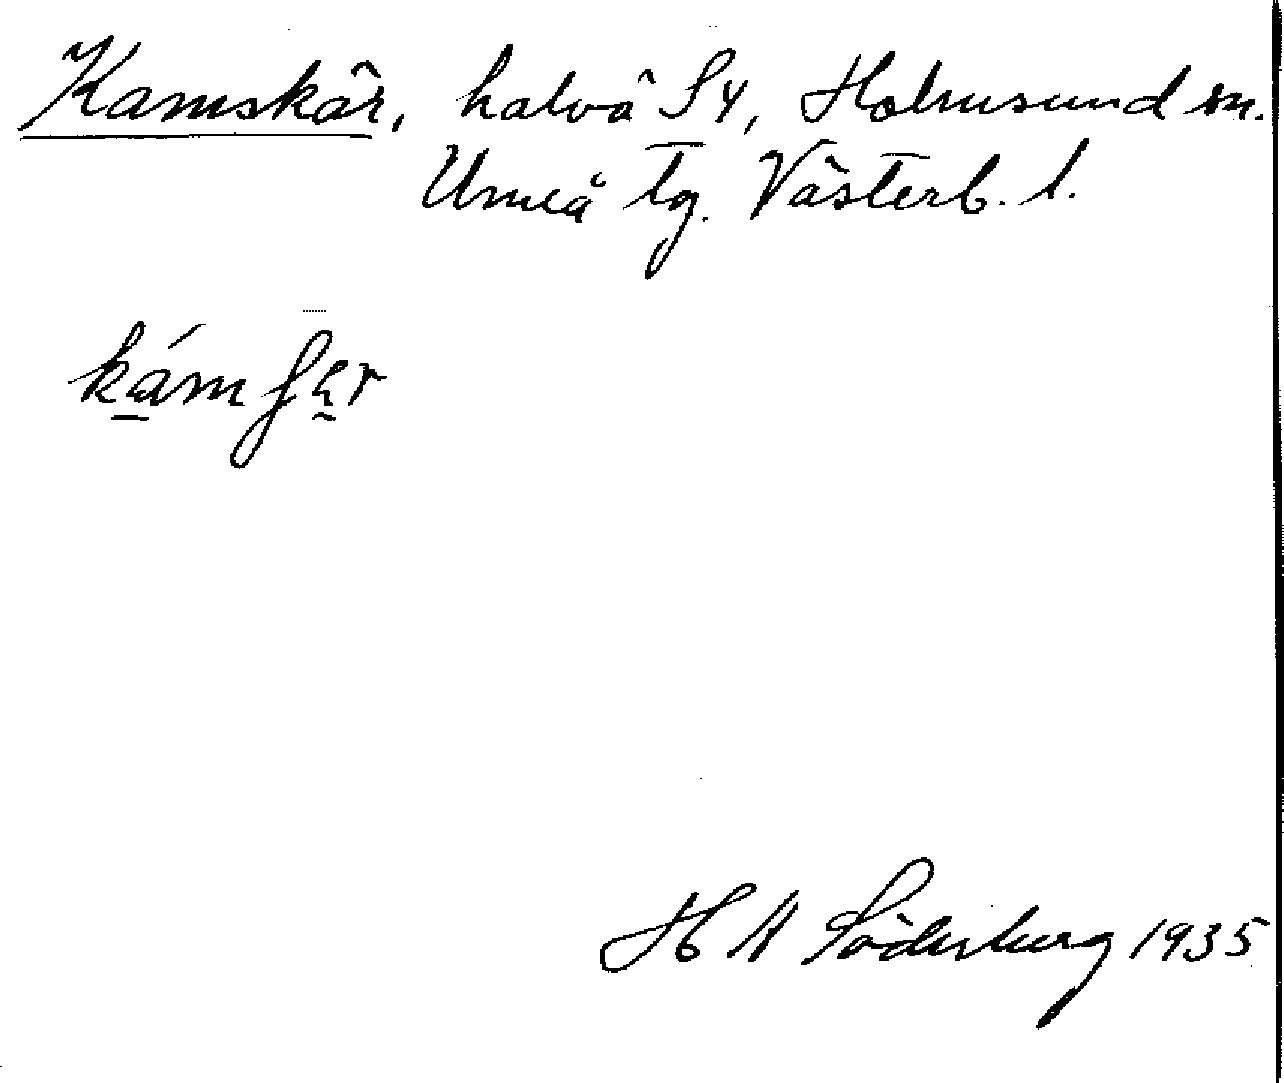 Kamskär, halvö SV, Holmsund sn.
Umeå tg. Västerb. l.
kámʃär
H A Söderberg 1935